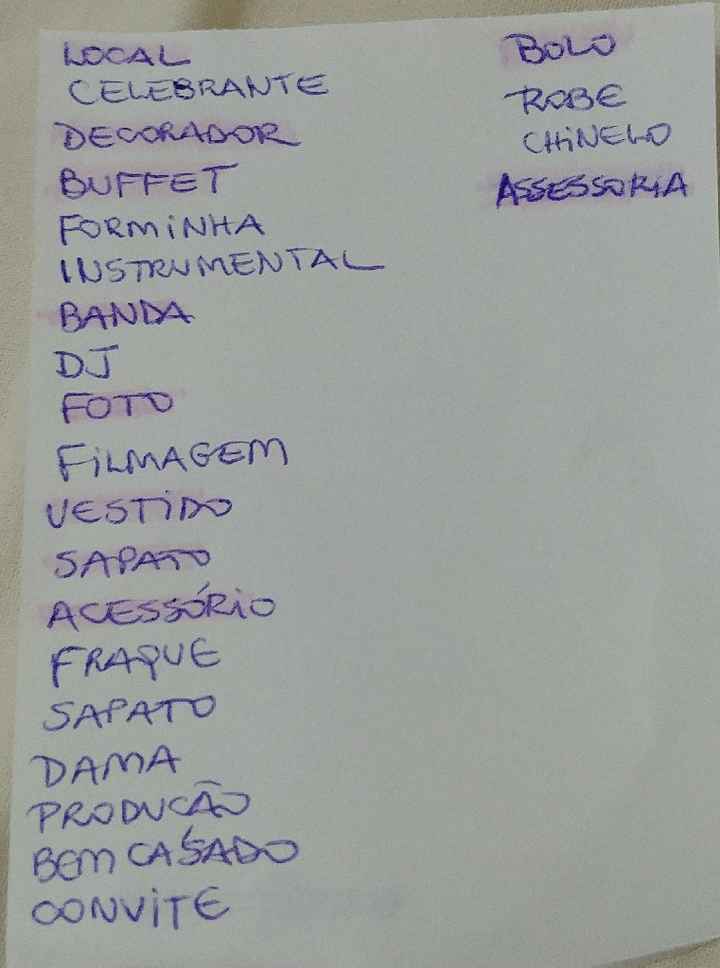 LOCAL
CELEBRANTE
DECORADOR
BUFFET
FORMINHA
INSTRUMENTAL
BANDA
DJ
FOTO
FILMAGEM
VESTIDO
SAPATO
ACESSÓRIO
FRAQUE
SAPATO
DAMA
PRODUCÃO
BEM CASADO
CONVITE
BOLO
ROBE
CHINELO
ASSESSORIA